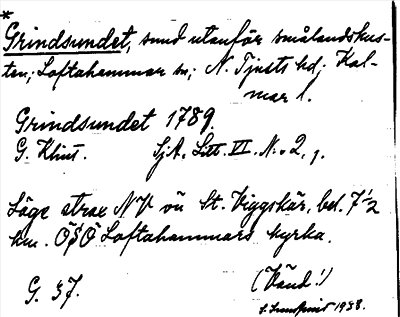 *
Grindsundet, sund utanför smålandskus-
ten; Loftahammar sn; N. Tjusts hd; Kal-
mar l.
Grindsundet 1789.
G. Klint. SjA. Litt. VI. N:o 2,
Läge strax NV om St. Viggskär, bel. 7 1/2
km. ÖSÖ Loftahammars kyrka.
G. 37. (Vänd!)
1938.